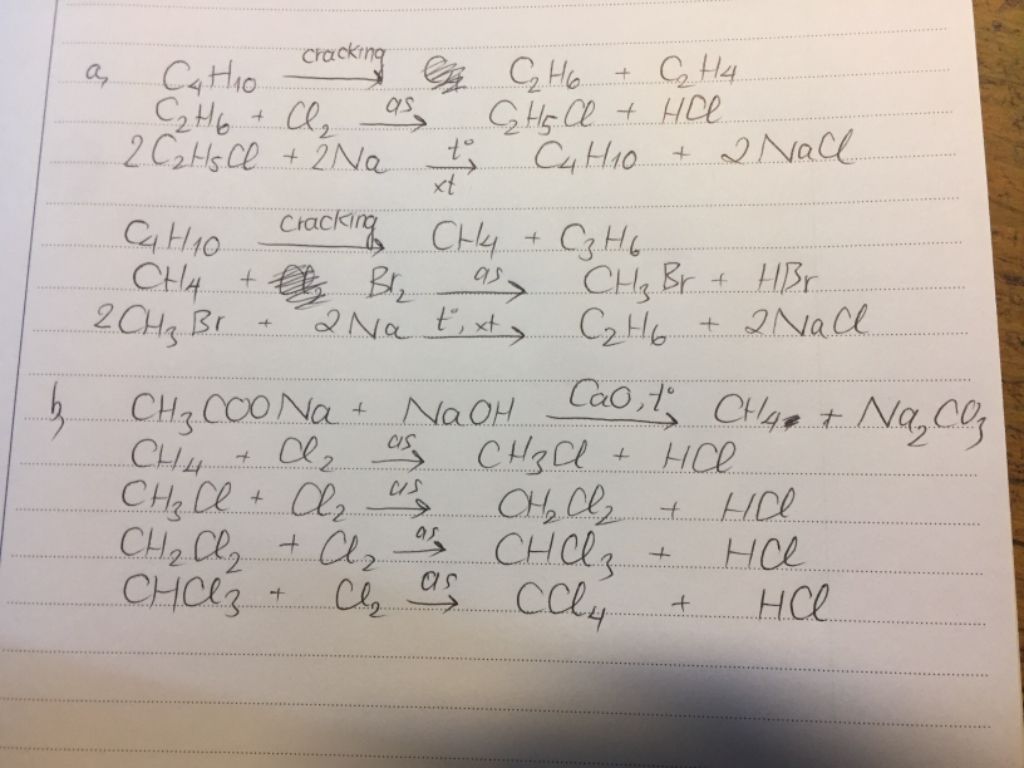 a, C₄H₁₀ cracking→ C₂H₆ + C₂H₄
C₂H₆ + Cl₂ as→ C₂H₅Cl + HCl
2C₂H₅Cl + 2Na t° xt→ C₄H₁₀ + 2NaCl
C₄H₁₀ cracking→ CH₄ + C₃H₆
CH₄ + Br₂ as→ CH₃Br + HBr
2CH₃Br + 2Na t°, xt→ C₂H₆ + 2NaCl
b, CH₃COONa + NaOH CaO, t°→ CH₄ + Na₂CO₃
CH₄ + Cl₂ as→ CH₃Cl + HCl
CH₃Cl + Cl₂ as→ CH₂Cl₂ + HCl
CH₂Cl₂ + Cl₂ as→ CHCl₃ + HCl
CHCl₃ + Cl₂ as→ CCl₄ + HCl